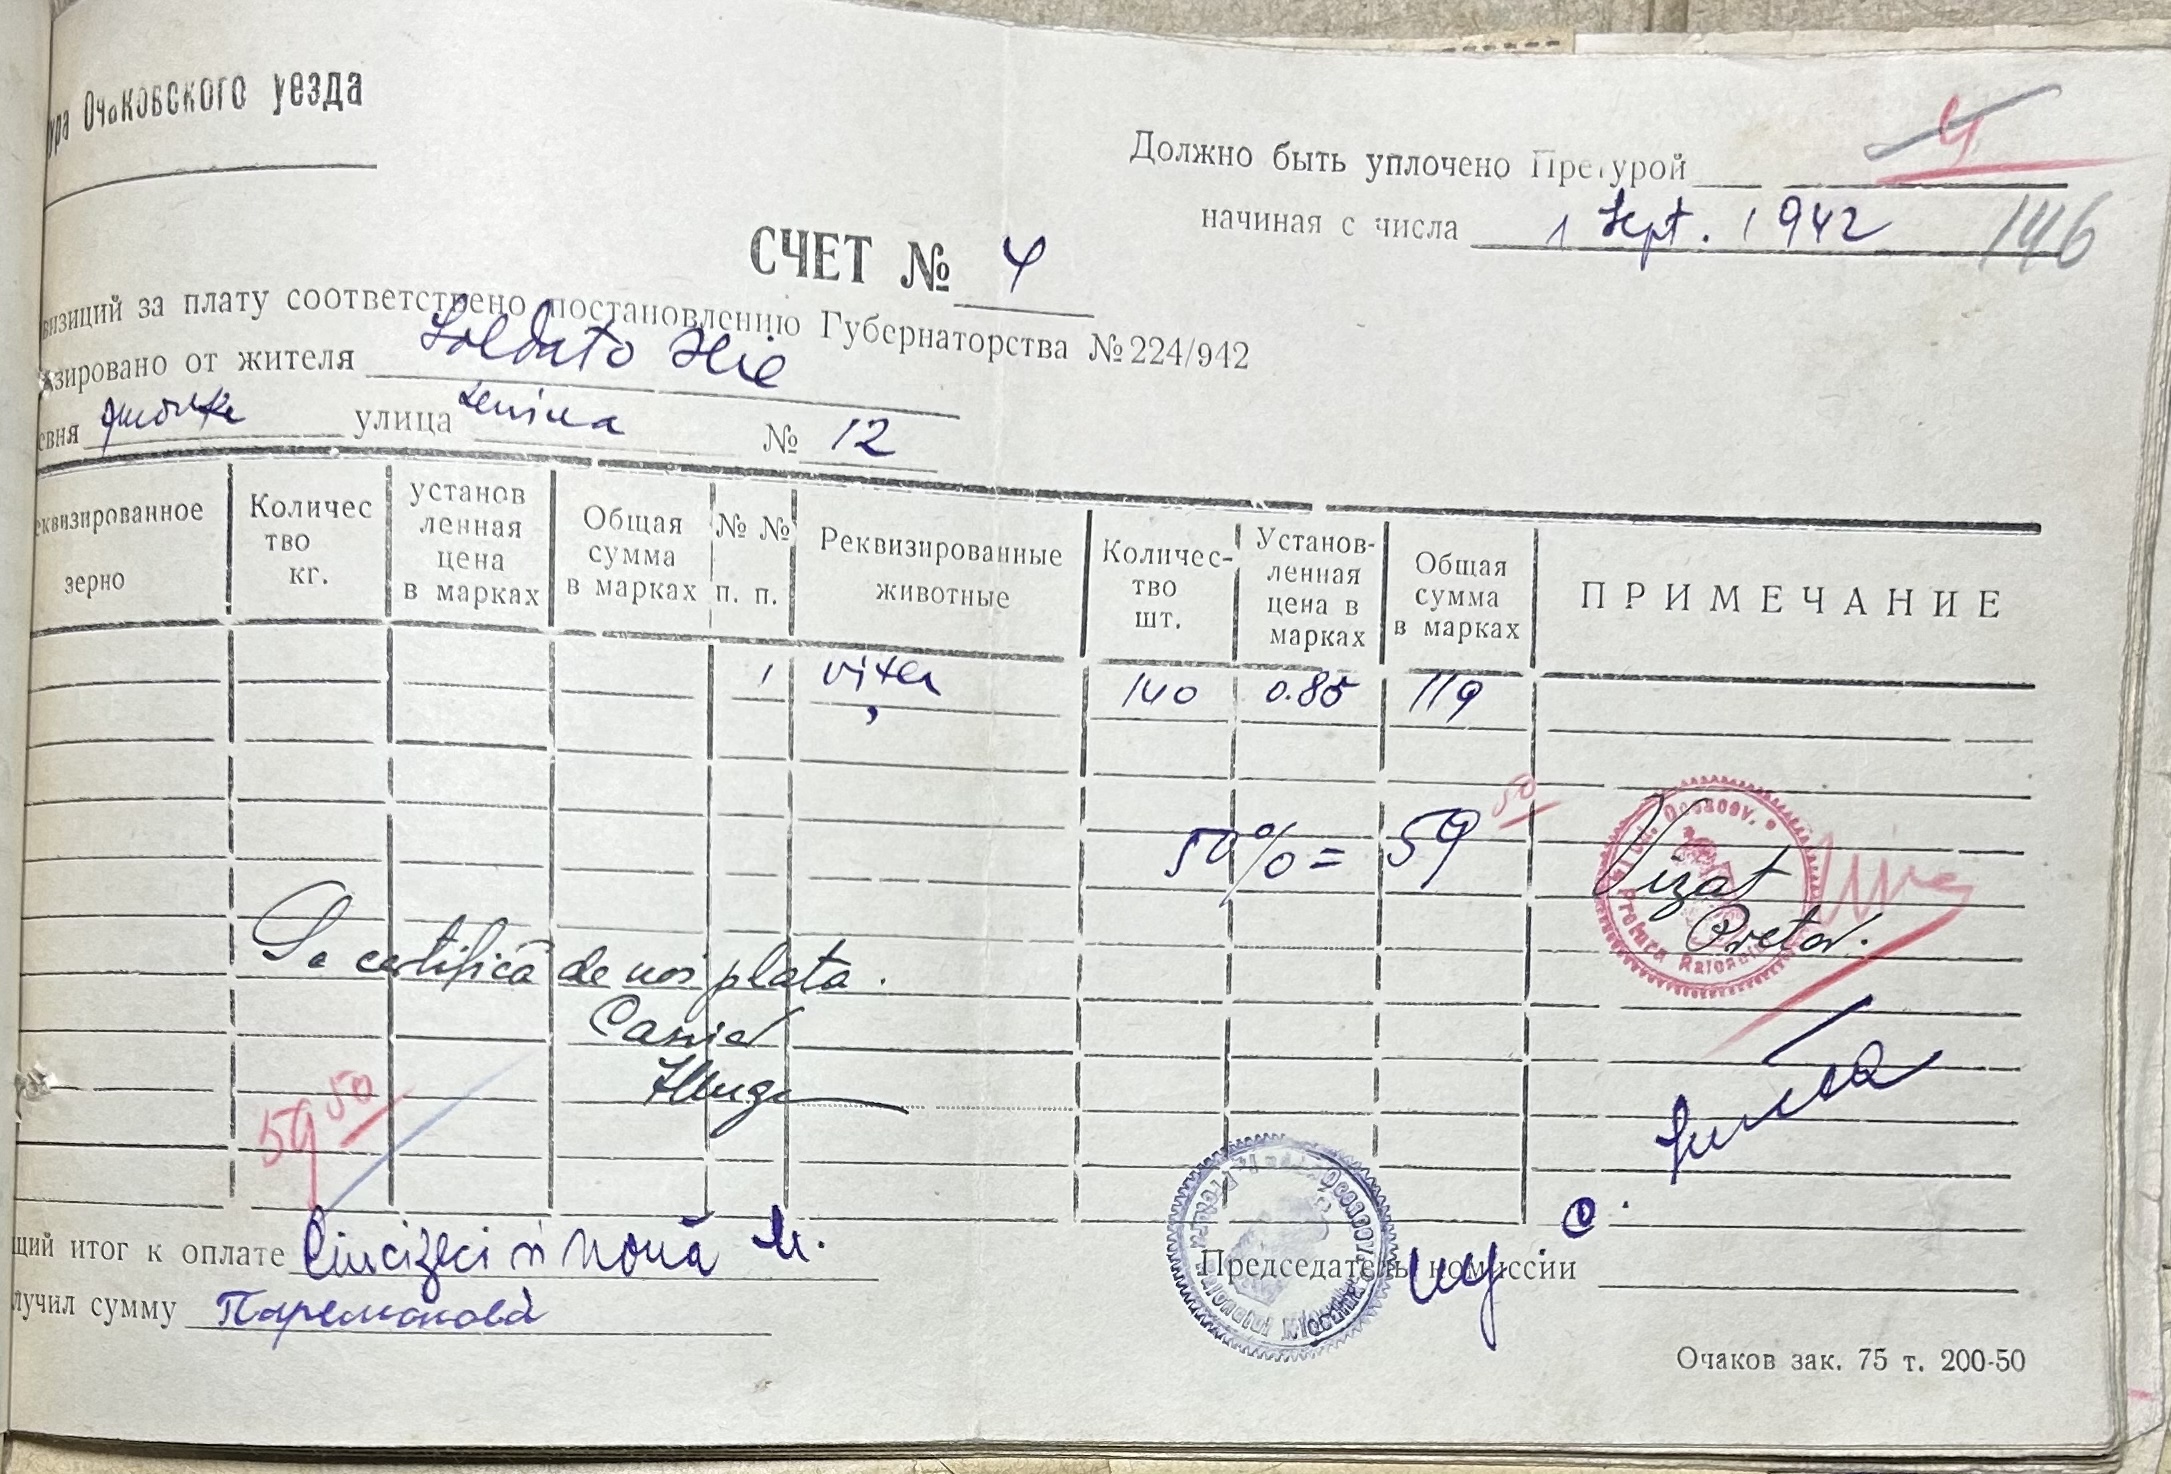 ура Очаковского уезда
Должно быть уплочено Претурой
4
начиная с числа 1 Sept. 1942
146
СЧЕТ № 4
визиций за плату соответствено постановлению Губернаторства № 224/942
изировано от жителя Soldato Ilie
евня улица Lenina № 12
еквизированное зерно
Количес тво кг.
установ ленная цена в марках
Общая сумма в марках
№ № п. п.
Реквизированные животные
Количес- тво шт.
Установ- ленная цена в марках
Общая сумма в марках
ПРИМЕЧАНИЕ
1 vițea 140 0.85 119
50% = 59 50
Vizat
Pretor.
Se certifică de noi plata.
Casier
59 50
щий итог к оплате Cincizeci și nouă M.
лучил сумму Парамонова
Председатель комиссии
Очаков зак. 75 т. 200-50